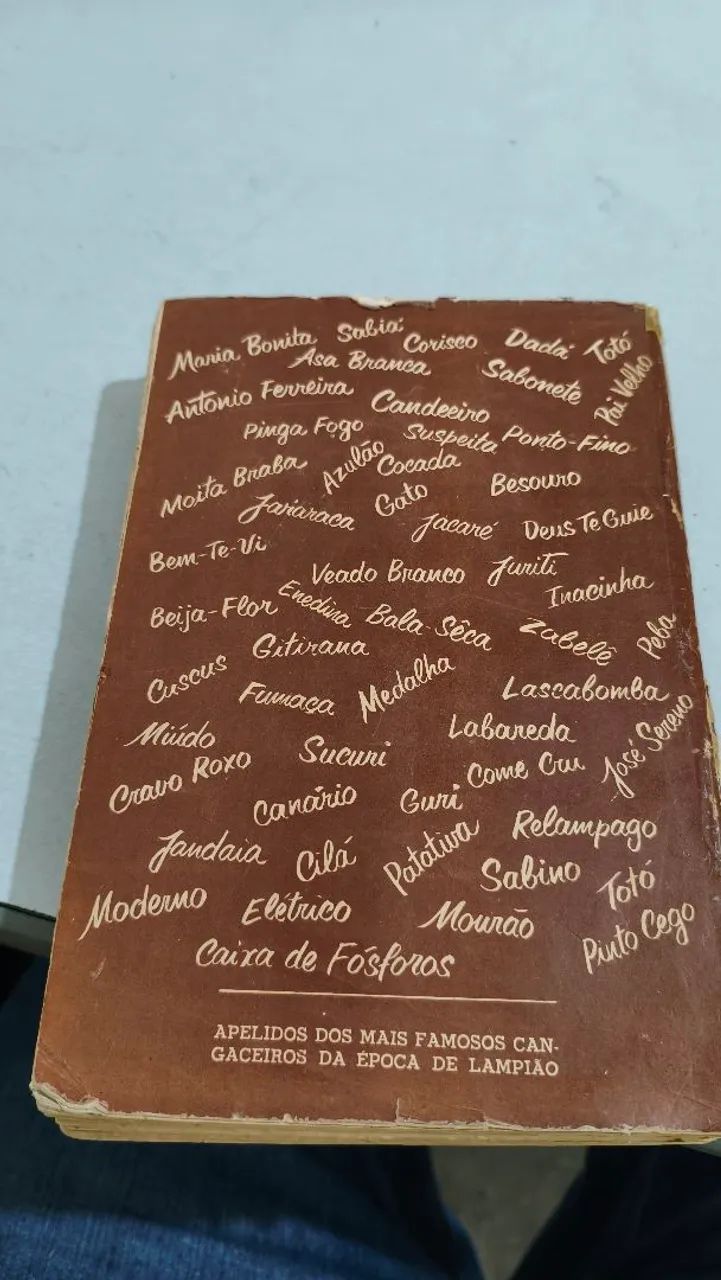 Maria Bonita Sabiá Corisco Dadá Totó
Asa Branca Sabonete Pai Velho
Antonio Ferreira Candeeiro
Pinga Fogo Suspeita Ponto-Fino
Moita Braba Azulão Cocada Besouro
Jararaca Gato Jacaré Deus Te Guie
Bem-Te-Vi Veado Branco Juriti Inacinha
Beija-Flor Enedina Bala-Sêca Zabelê Peba
Cuscus Gitirana
Fumaça Medalha Lascabomba
Miúdo Sucuri Labareda José Sereno
Cravo Roxo Canário Guri Come Cru
Jandaia Cilá Patativa Relampago
Moderno Elétrico Mourão Sabino Totó
Caixa de Fósforos Pinto Cego
APELIDOS DOS MAIS FAMOSOS CAN-
GACEIROS DA ÉPOCA DE LAMPIÃO